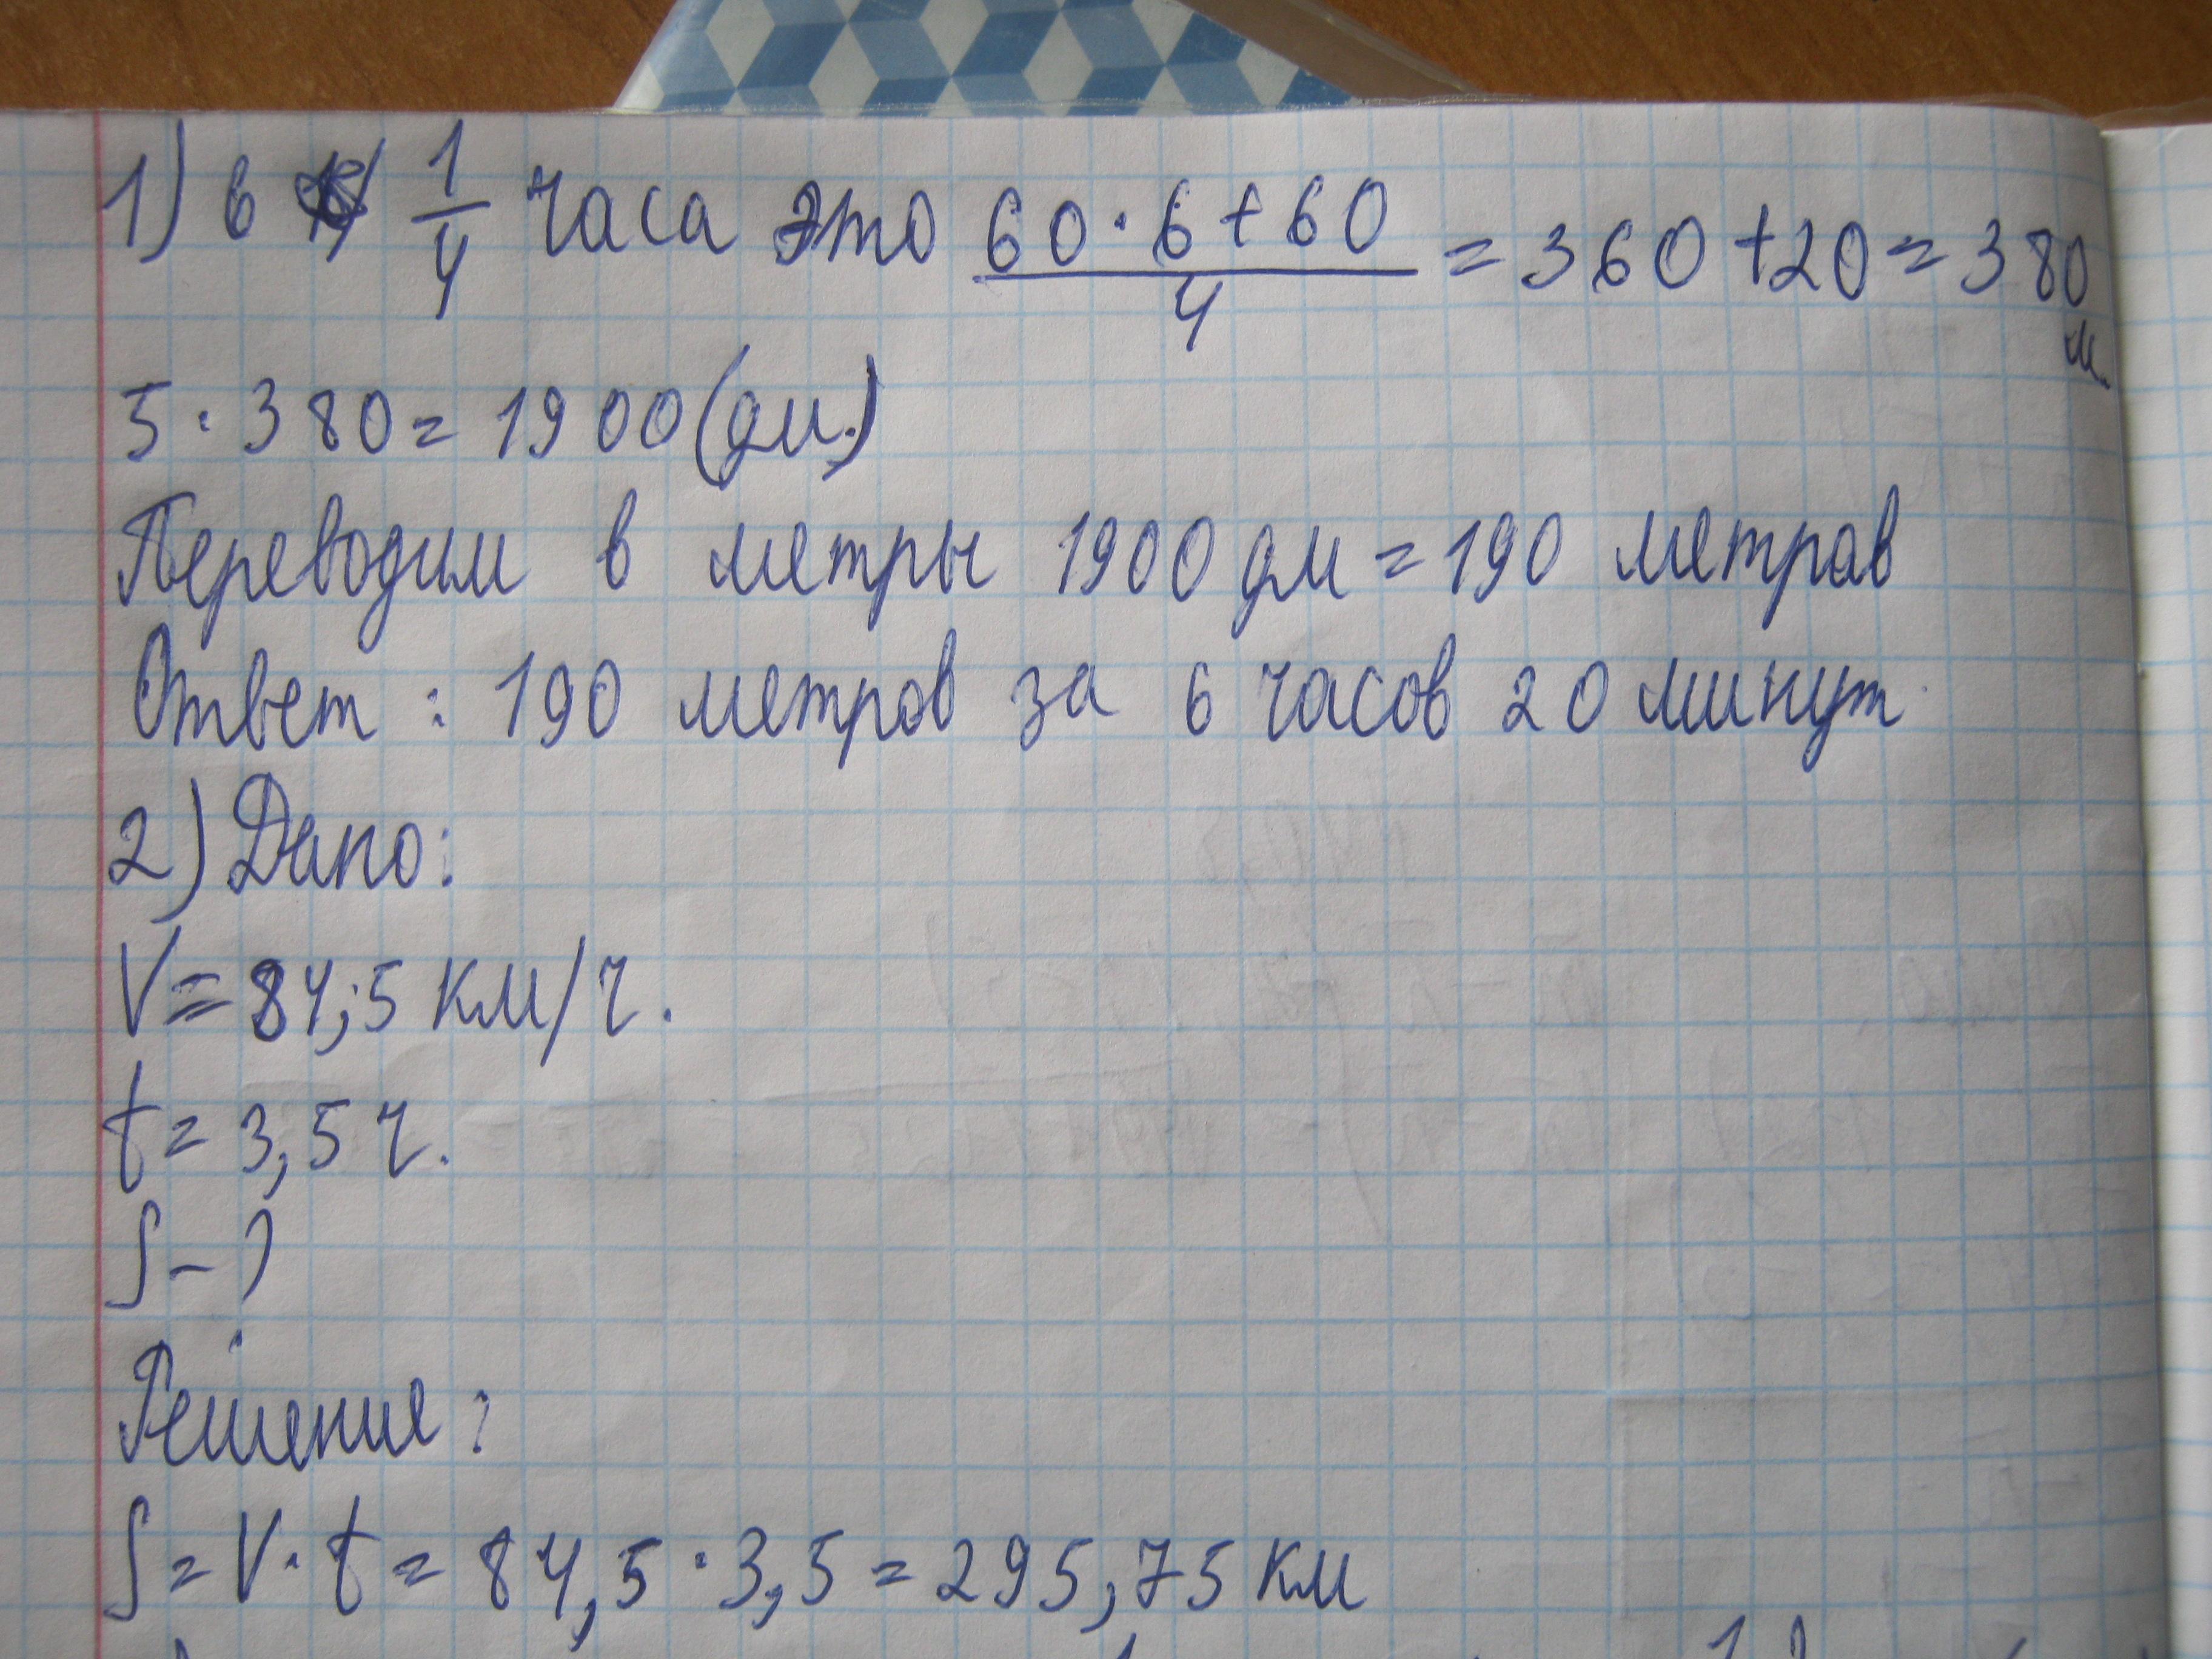 1) 6 1/4 часа это (60·6+60)/4 = 360+20=380 м.
5·380=1900(дм.)
Переводим в метры 1900 дм=190 метров
Ответ: 190 метров за 6 часов 20 минут
2) Дано:
V=84,5 км/ч.
t=3,5 ч.
S-?
Решение:
S=V·t=84,5·3,5=295,75 км